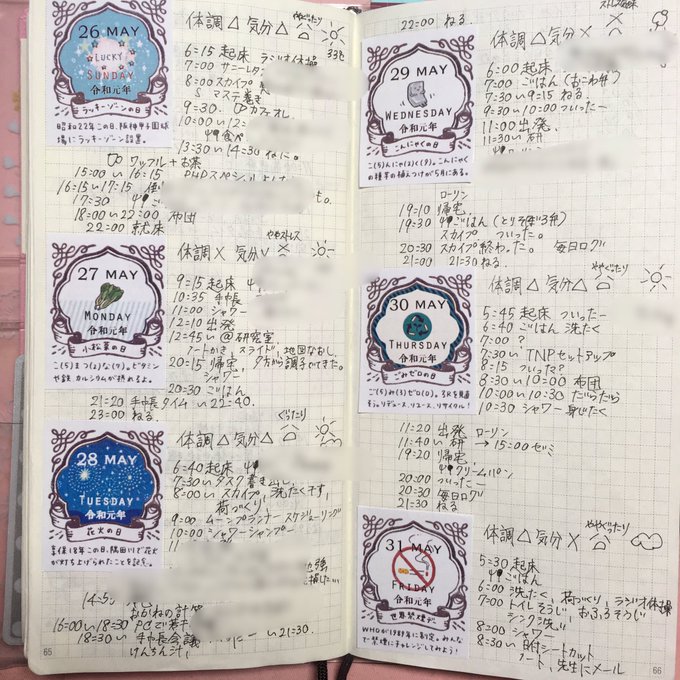 26 MAY
LUCKY
SUNDAY
令和元年
ラッキーゾーンの日
昭和22年この日、阪神甲子園球
場にラッキーゾーン設置。
体調 △ 気分 △ ややぐったり
6:15 起床 ラジオ体操
7:00 サニーレタ
8:00 スカイプ
マステ巻き
9:30 カフェオレ
10:00い12:
食べ
13:30い14:30
ワッフル+お茶
15:00 い 16:15
16:15い17:15
17:30 ごは
18:00い22:00 布団
22:00 就床
27 MAY
MONDAY
令和元年
小松菜の日
こ(5)まつ(2)な(7)。ビタミン
や鉄、カルシウムが摂れるよ。
体調 X 気分 ✓ ややストレス
9:15 起床
10:35 手帳
11:00 シャワー
12:10 出発
12:45い @研究室
ノートかき、スライド、地図なおし
20:15 帰宅 夕方から調子でてきた。
シャワー
20:30 ごはん
21:20 手帳タイム い 22:40.
23:00 ねる
28 MAY
TUESDAY
令和元年
花火の日
享保18年この日、隅田川で花火
が打ち上げられたことを記念。
体調 △ 気分 △ ぐったり
6:40 起床
7:30い タスク書き出し
8:00い スカイプ、洗たく干す、
荷づくり
9:00 ムーンプランナー スケジューリング
10:00 シャワーシャンプー
11
14:5
おかねの計
16:00い18:30 PCで
18:30い 手帳会議 い 21:30.
けんちん汁
65
22:00 ねる
29 MAY
WEDNESDAY
令和元年
こんにゃくの日
こ(5)んにゃ(2)く(9)。こんにゃく
の種芋の植えつけが5月にある。
体調 △ 気分 X
6:00 起床
7:00 ごはん(おこわ弁)
7:30い9:15 ねる
9:30い10:00 ついったー
11:00 出発
11:30い 研
ローリン
19:10 帰宅
19:30 ごはん(とりそぼろ弁)
スカイプ ついった。
20:30 スカイプ終わった。 毎日ログ
21:00 21:30 ねる
30 MAY
THURSDAY
令和元年
ごみゼロの日
ご(5)み(3)ゼロ(0)。3Rを見直
そう。リデュース、リユース、リサイクル!
体調 △ 気分 △ ややぐったり
5:45 起床 ついったー
6:40 ごはん 洗たく
7:00 ?
7:30い TNPセットアップ
8:15 ついった?
8:30い10:00 布団
10:00い10:30 だらだら
10:30 シャワー 身じたく
11:20 出発 ローリン
11:40い 研 → 15:00ゼミ
19:20 帰宅
クリームパン
20:00 ついったー
20:30 毎日ログ
21:30 ねる
31 MAY
FRIDAY
令和元年
世界禁煙デー
WHOが1989年に制定。みんな
で禁煙にチャレンジしてみよう!
体調 △ 気分 X ややぐったり
5:30 起床
ごはん
6:00 洗たく、荷づくり、ラジオ体操
7:00 トイレそうじ、おふろそうじ
シンク洗い
8:00 シャワー
8:30い 日付シートカット
ノート、先生にメール
66